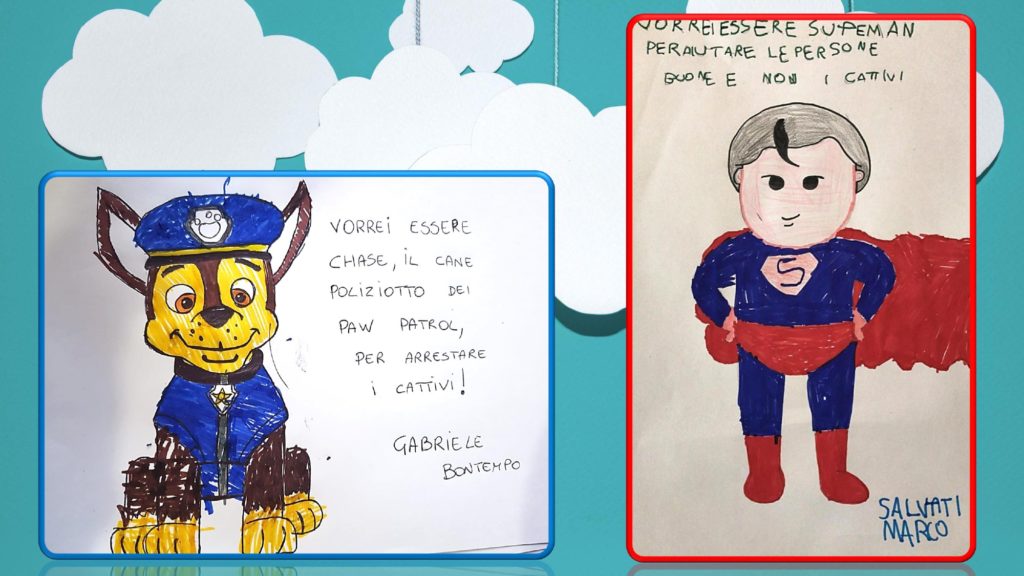 VORREI ESSERE
CHASE, IL CANE
POLIZIOTTO DEI
PAW PATROL,
PER ARRESTARE
I CATTIVI!
GABRIELE
BONTEMPO
VORREI ESSERE SUPEMAN
PER AIUTARE LE PERSONE
BUONE E NON I CATTIVI
S
SALVATI
MARCO